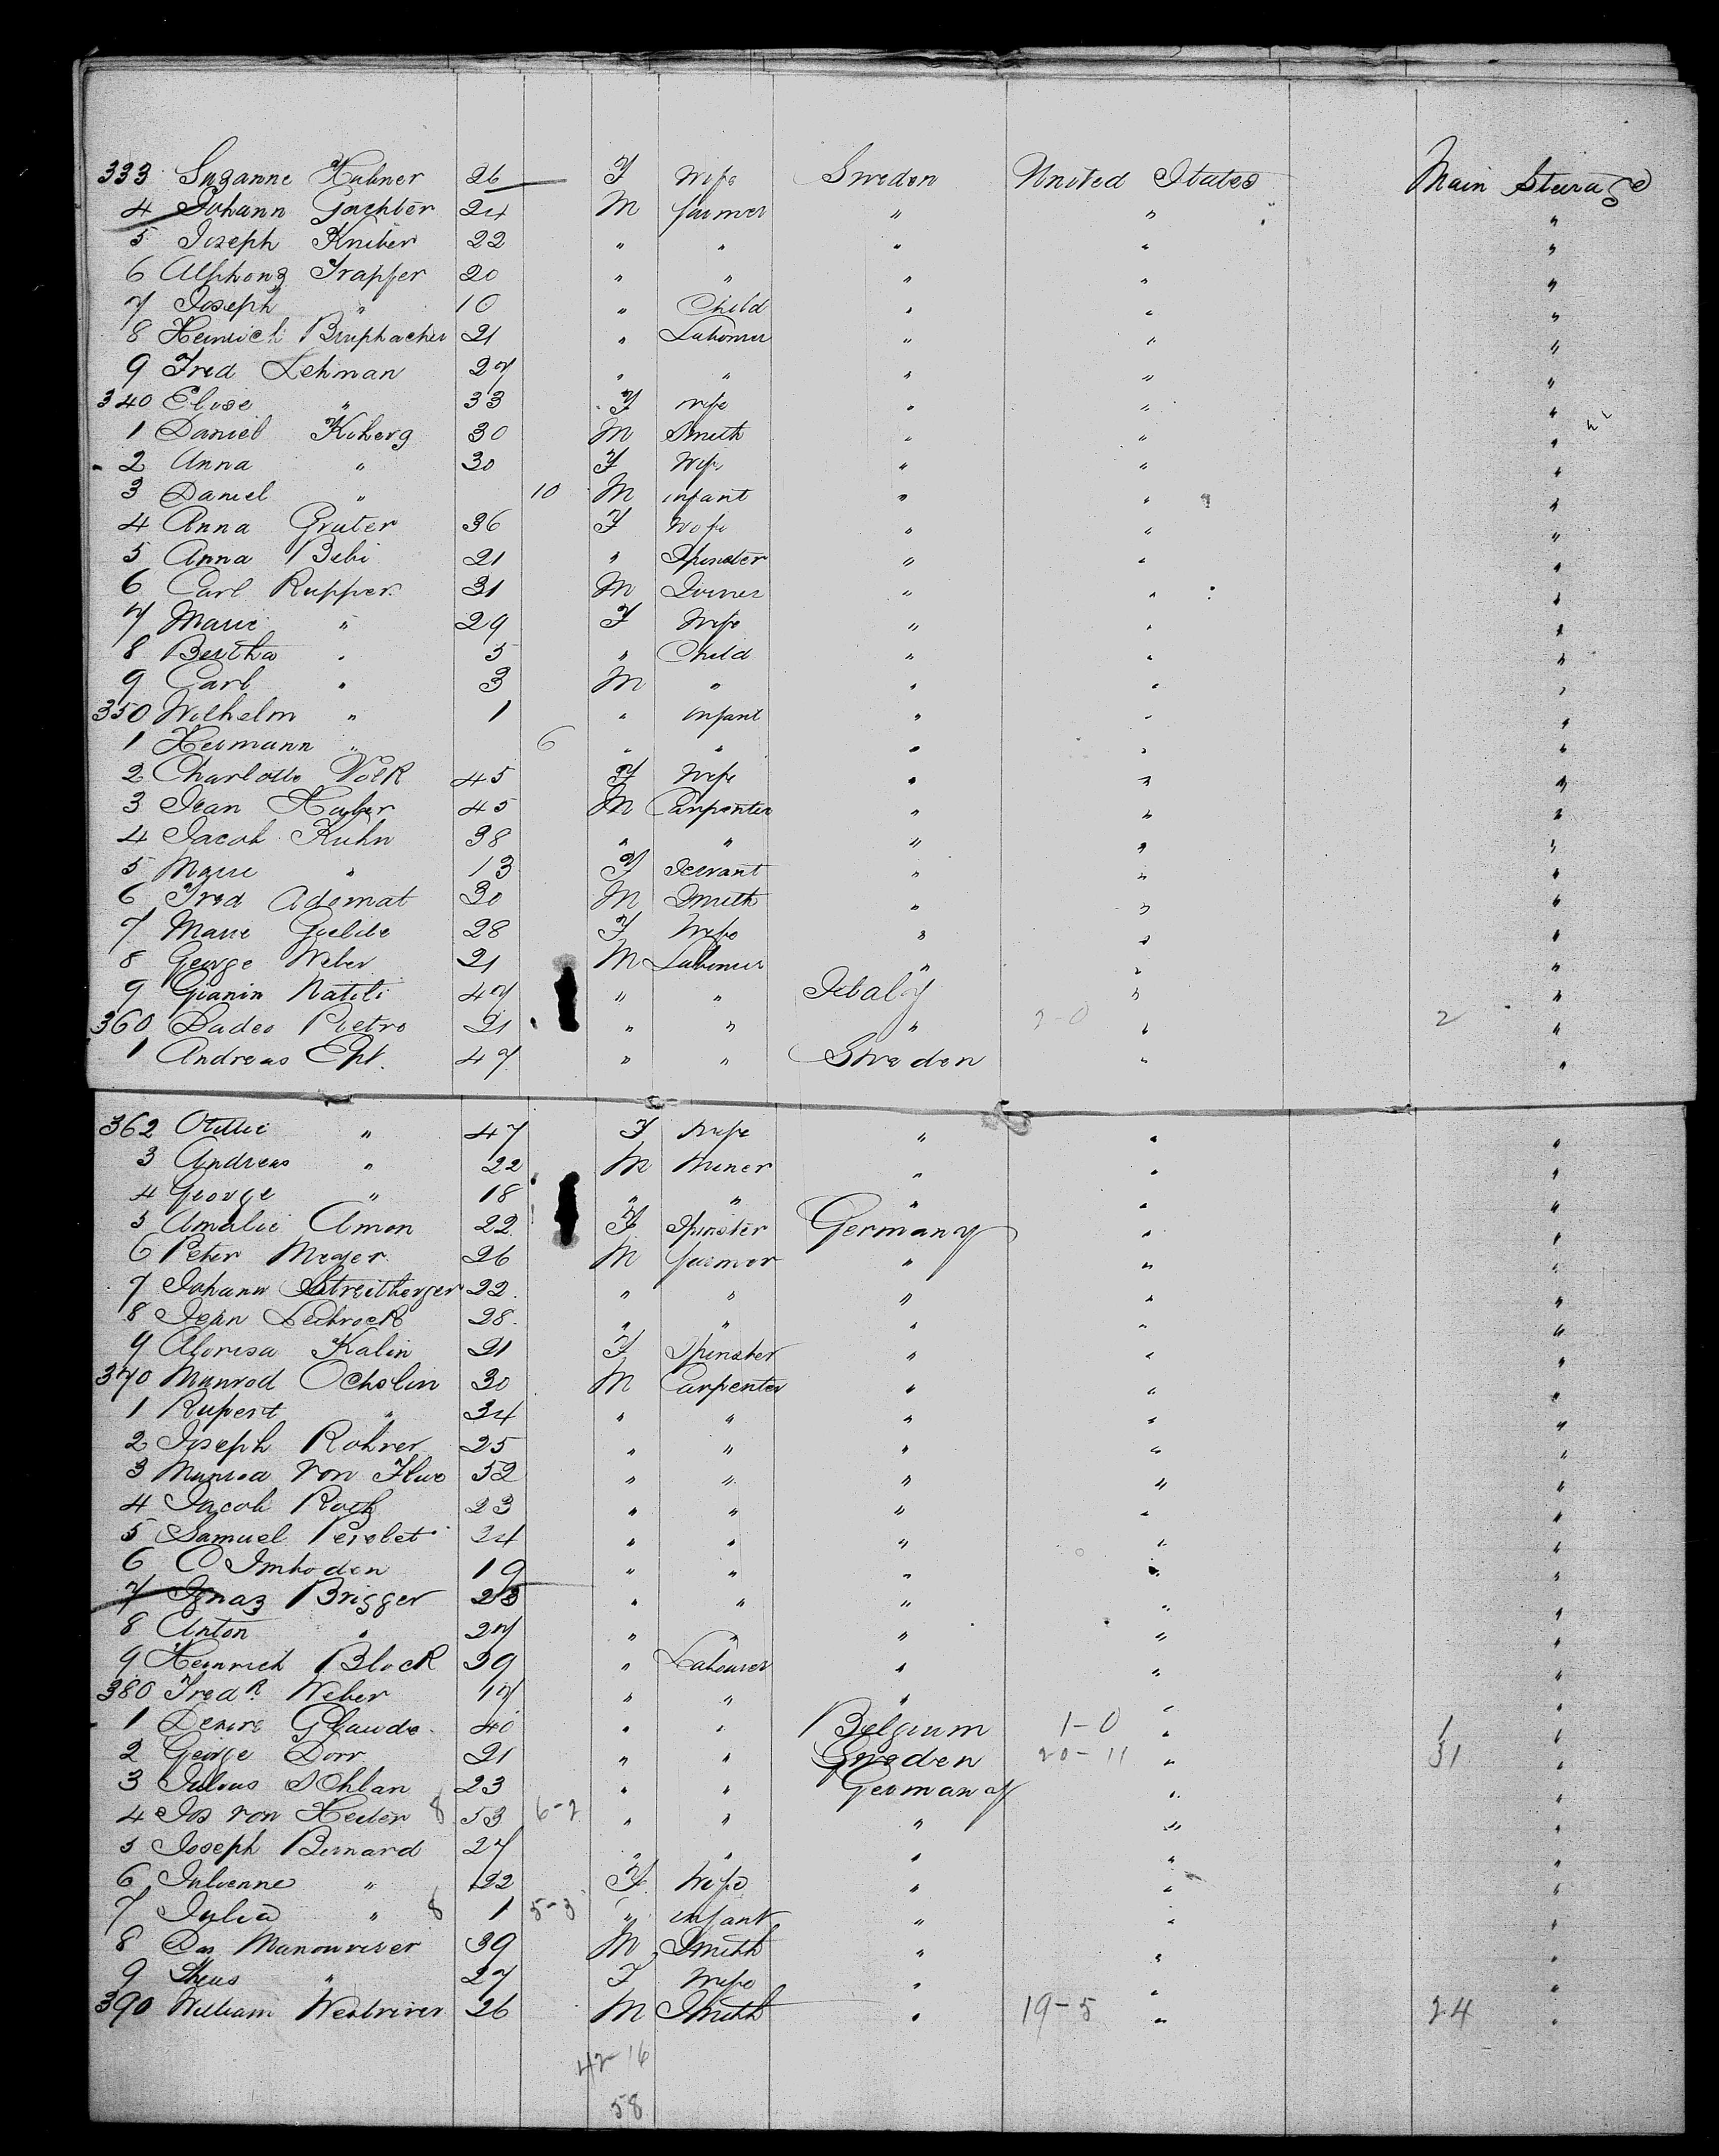 333 Suzanne Hubner 26 F Wife Sweden United States Main Steerage
4 Johann Gachter 24 M farmer " " "
5 Joseph Kniber 22 " " " " "
6 Alphonz Trapfer 20 " " " " "
7 Joseph " 10 " Child " " "
8 Heinrich Bruphacher 21 " Labourer " " "
9 Fred Lehman 27 " " " " "
340 Elise " 33 F wife " " "
1 Daniel Koherg 30 M Smith " " "
2 Anna " 30 F Wife " " "
3 Daniel " 10 M infant " " "
4 Anna Gruter 36 F Wife " " "
5 Anna Bebi 21 " Spinster " " "
6 Carl Rupper 31 M Joiner " " "
7 Marie " 29 F Wife " " "
8 Bertha " 5 " Child " " "
9 Carl " 3 M " " " "
350 Wilhelm " 1 " infant " " "
1 Hermann " 6 " " " " "
2 Charlotte Volk 45 F Wife " " "
3 Jean Huber 45 M Carpenter " " "
4 Jacob Kuhn 38 " " " " "
5 Marie " 13 F Servant " " "
6 Fred Adomat 30 M Smith " " "
7 Marie Goelile 28 F Wife " " "
8 George Weber 21 M Labourer " " "
9 Gianin Natili 47 " " Italy " "
360 Dadeo Pietro 21 " " " 2-0 " 2 "
1 Andreas Ept. 47 " " Sweden " "
362 Otillie " 47 F Wife " " "
3 Andreas " 22 M Miner " " "
4 George " 18 " " " " "
5 Amalie Amon 22 F Spinster Germany " "
6 Peter Meyer 26 M farmer " " "
7 Johann Streitberger 22 " " " " "
8 Jean Leibrock 28 " " " " "
9 Aloresa Kalin 21 F Spinster " " "
370 Munrod Ocholin 30 M Carpenter " " "
1 Rupert " 34 " " " " "
2 Joseph Rohrer 25 " " " " "
3 Munroa von Flue 52 " " " " "
4 Jacob Roth 23 " " " " "
5 Samuel Perolet 24 " " " " "
6 C Imhoden 19 " " " " "
7 Ignaz Brigger 25 " " " " "
8 Anton " 27 " " " " "
9 Heinrich Block 39 " Labourer " " "
380 Fredk Weber 17 " " " " "
1 Desire Glaude 40 " " Belgium 1-0 " 1 "
2 George Dorr 21 " " Sweden 20-11 " 31 "
3 Julius Ohlan 23 " " Germany " "
4 Jos von Heiler 8 53 6-2 " " " " "
5 Joseph Bernard 27 " " " " "
6 Julienne " 22 F Wife " " "
7 Julia " 8 1 5-3 " infant " " "
8 Das Manouvrier 39 M Smith " " "
9 " 27 F Wife " " "
390 William Westriver 26 M Smith " 19-5 " 24 "
42 16
58